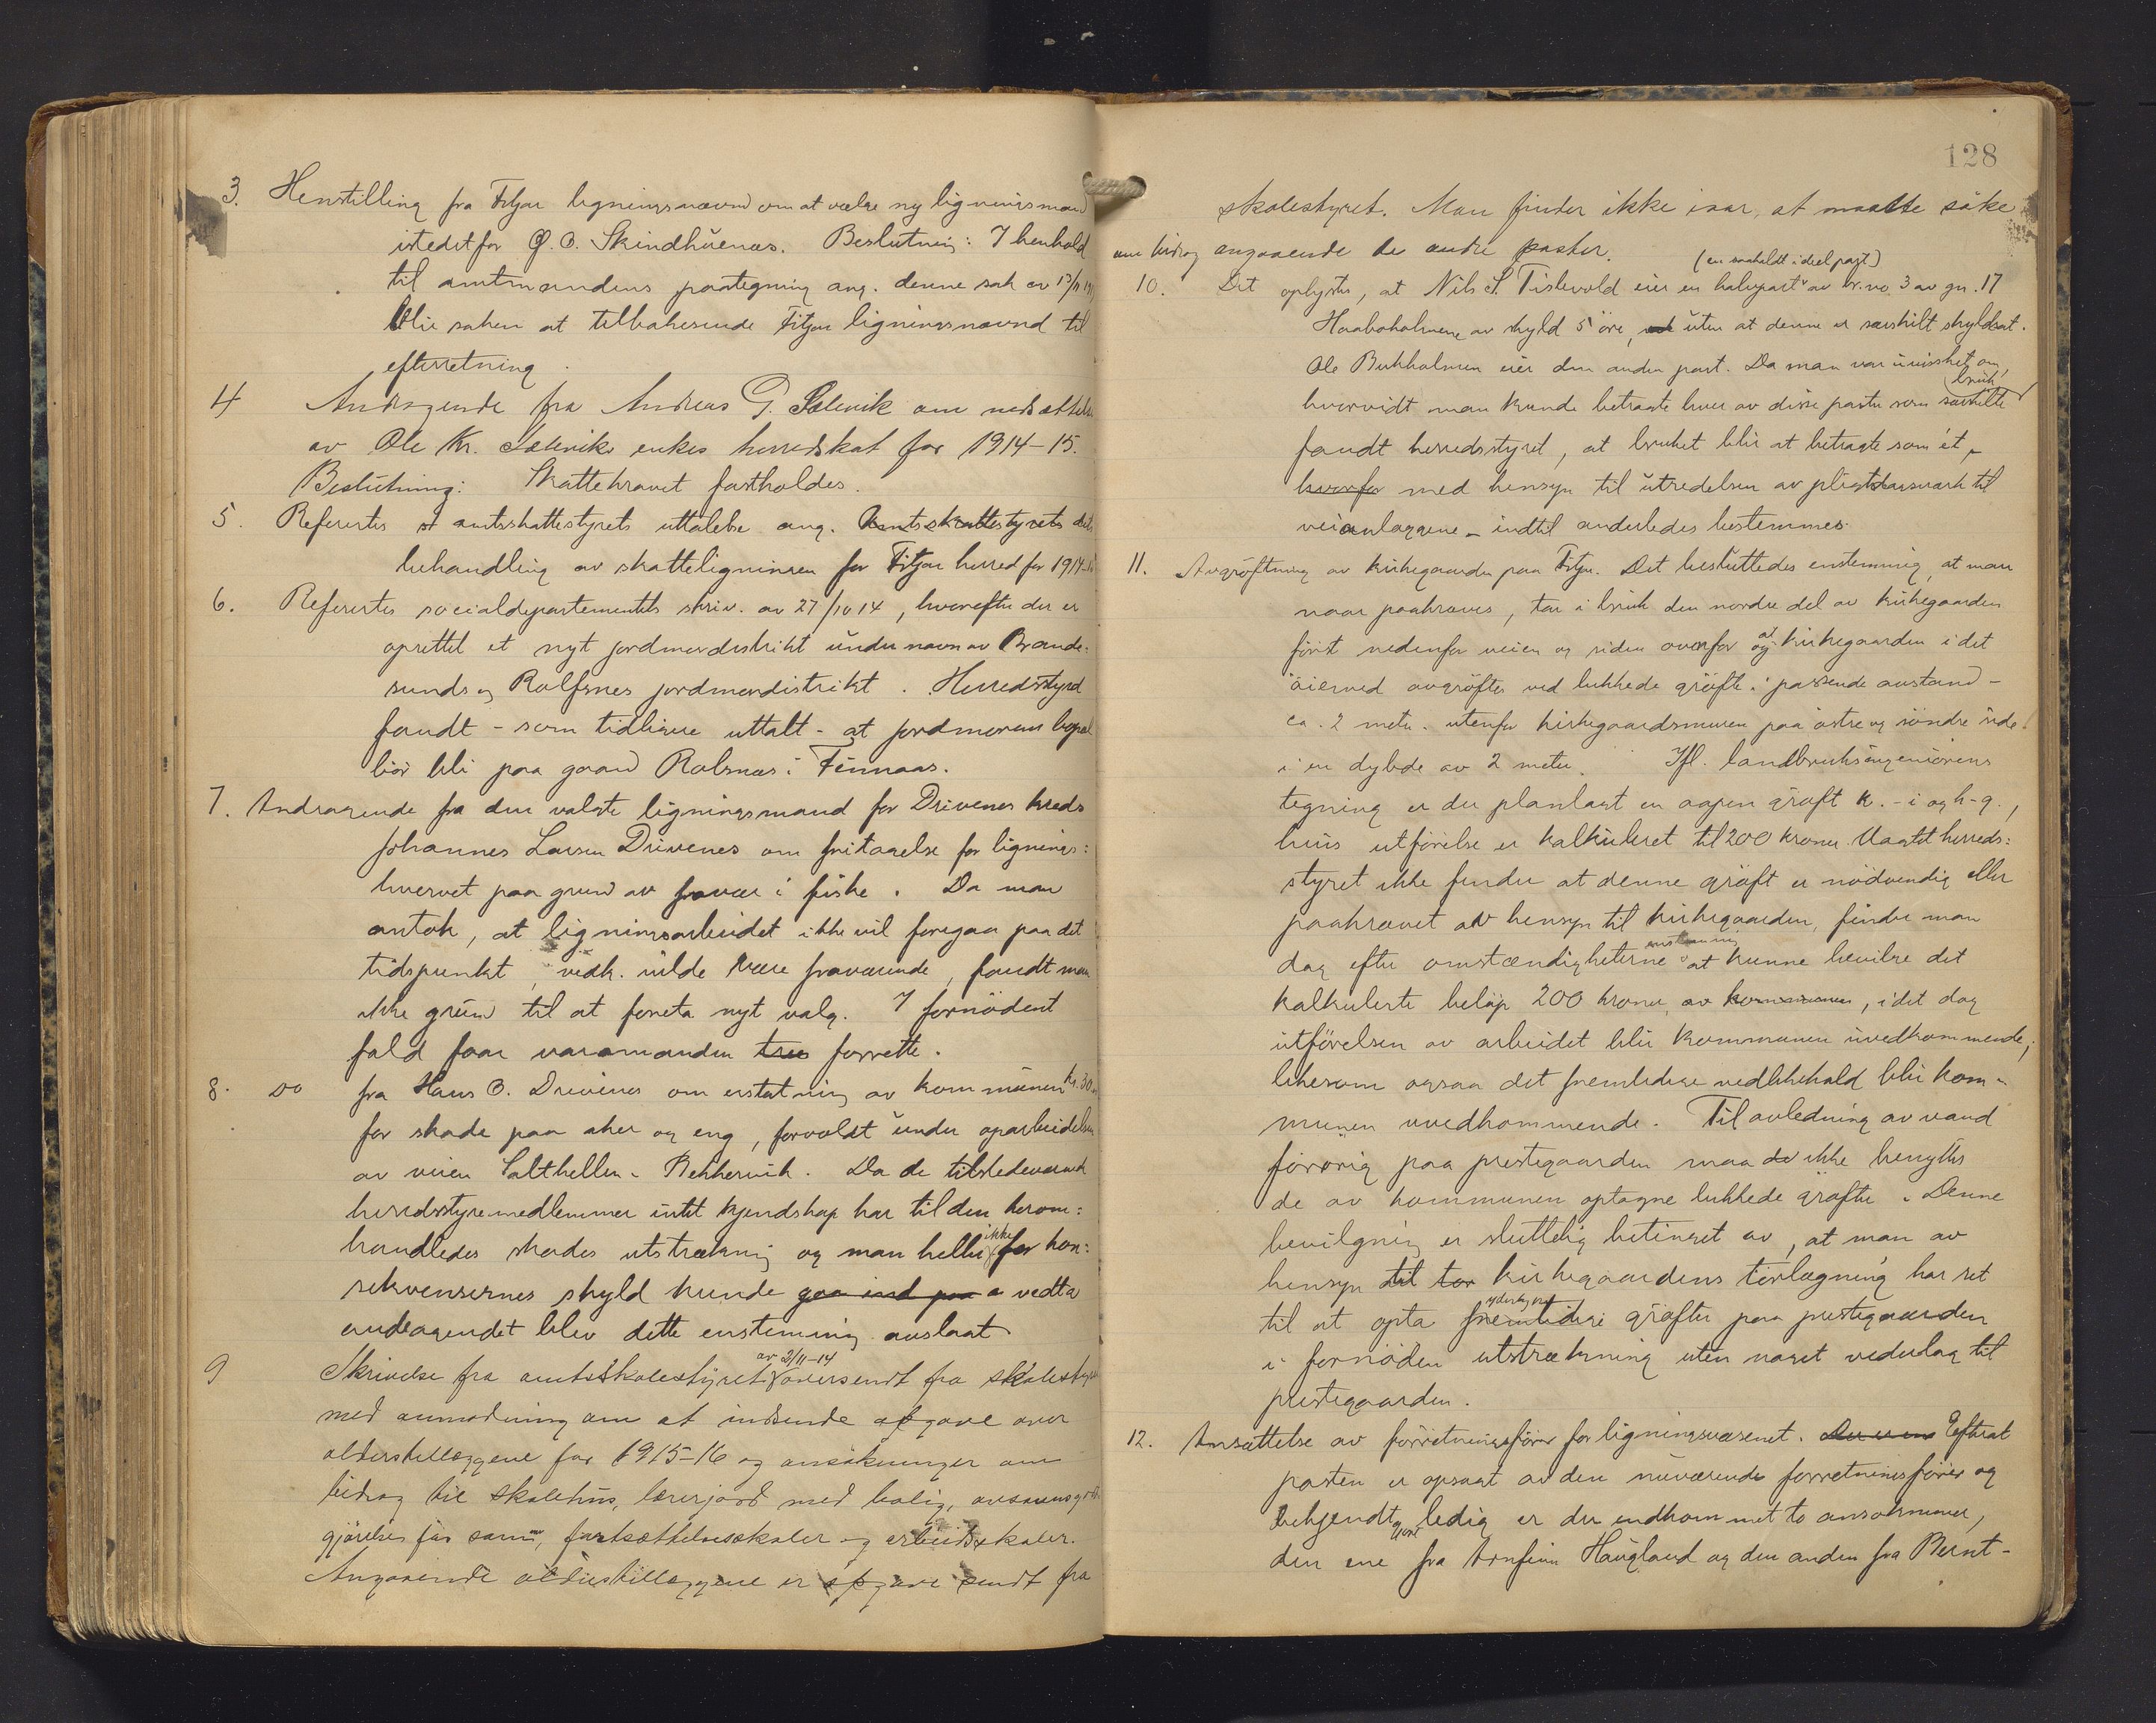 3. Henstilling fra Fitjar ligningsnævnd om at vælge ny ligningsmand
istedetfor O. O. Skindhuenæs. Beslutning: I henhold
til amtmandens paategning ang. denne sak av 13/11 191
blir saken at tilbakesende Fitjar ligningsnævnd til
efterretning.
4 Andragende fra Andreas G. Sælevik om nedsættelse
av Ole Kr. Sæleviks enkes herredskat for 1914-15.
Beslutning: Skattekravet fastholdes.
5. Referertes amtsskattestyrets uttalelse ang. Amtsskattestyrets dets
behandling av skatteligningen for Fitjar herred for 1914-15
6. Referertes socialdepartementets skriv. av 27/10 14, hvorefter der er
oprettet et nyt jordmordistrikt under navn av Brande=
sunds og Rolfsnes jordmordistrikt. Herredsstyret
fandt - som tidligere uttalt - at jordmorens bopæl
bör bli paa gaard Rolsnæs i Finnaas.
7. Andragende fra den valgte ligningsmand for Drivenes kreds
Johannes Larsen Drivenes om fritagelse for lignings=
hvervet paa grund av fravær i fiske. Da man
antok, at ligningsarbeidet ikke vil foregaa paa det
tidspunkt, vedk. vilde være fraværende, fandt man
ikke grund til at foreta nyt valg. I fornödent
fald faar varamanden forrette.
8. Do fra Hans O. Drivenes om erstatning av kommunen kr. 30.
for skade paa aker og eng, forvoldt under oparbeidelsen
av veien Salthellen - Bekkervik. Da de tilstedeværende
herredsstyremedlemmer intet kjendskap har til den herom=
handledes skades utstrækning og man heller ikke for kon=
sekvensernes skyld kunde gaa ind paa a vedta
andragendet blev dette enstemmig avslaat
9 Skrivelse fra amtsskolestyret av 2/11-14 oversendt fra skolestyret
med anmodning om at indsende opgave over
alderstillæggene for 1915-16 og ansökninger om
bidrag til skolehus, lærerjord med bolig,
gjörelse för samme, fortsættelsesskoler og arbeidsskoler.
Angaaende alderstillæggene er opgave sendt fra
128
skolestyret. Man finder ikke iaar, at maatte söke
om bidrag angaaende de andre poster.
(en saakaldt ideel part)
10. Det oplystes, at Nils S. Tislevold eier en halvpart av br.no. 3 av gn. 17
Haaboholmene av skyld 5 öre, uten at denne er særskilt skyldsat.
Ole Bukholmen eier den anden part. Da man var i uvisshet om,
hvorvidt man kunde betragte hver av disse parter som særskilte bruk
fandt herredsstyret, at bruket blir at betragte som ét, -
hvorfor med hensyn til utredelsen av pligtdagsværk til
veianlæggene - indtil anderledes bestemmes.
11. Avgröftning av kirkegaarden paa Fitjar. Det besluttedes enstemmig, at man
naar paakræves, tar i bruk den nordre del av kirkegaarden
först nedenfor veien og siden ovenfor og at kirkegaarden i det
öiemed avgröftes ved lukkede gröfter i passende avstand -
ca. 2 meter. utenfor kirkegaardsmuren paa östre og söndre side
i en dybde av 2 meter. Ifl. landbruksingeniörens
tegning er der planlagt en aapen gröft k. - i og h-g.,
hvis utförelse er kalkuleret til 200 kroner. Uagtet herreds=
styret ikke finder at denne gröft er nödvendig eller
paakrævet av hensyn til kirkegaarden, finder man
dog efter omstændigheterne enstemmig at kunne bevilge det
kalkulerte belöp 200 kroner, av kommunen, idet dog
utförelsen av arbeidet blir kommunen uvedkommende,
likesom ogsaa det fremtidige vedlikehold blir kom=
munen uvedkommende. Til avledning av vand
forövrig paa prestegaarden maa der ikke benyttes
de av kommunen optagne lukkede gröfter. Denne
bevilgning er sluttelig betinget av, at man av
hensyn til tor kirkegaardens törlægning har ret
til at opta fremtidige yderligere gröfter paa prestegaarden
i fornöden utstrækning uten noget vederlag til
prestegaarden.
12. Ansættelse av forretningsförer for ligningsvæsenet. Der er en Efterat
posten er opsagt av den nuværende forretningsförer og
bekjendtgjort ledig er der indkommet to ansökninger,
den ene fra Arnfinn Haugland og den anden fra Bernt-